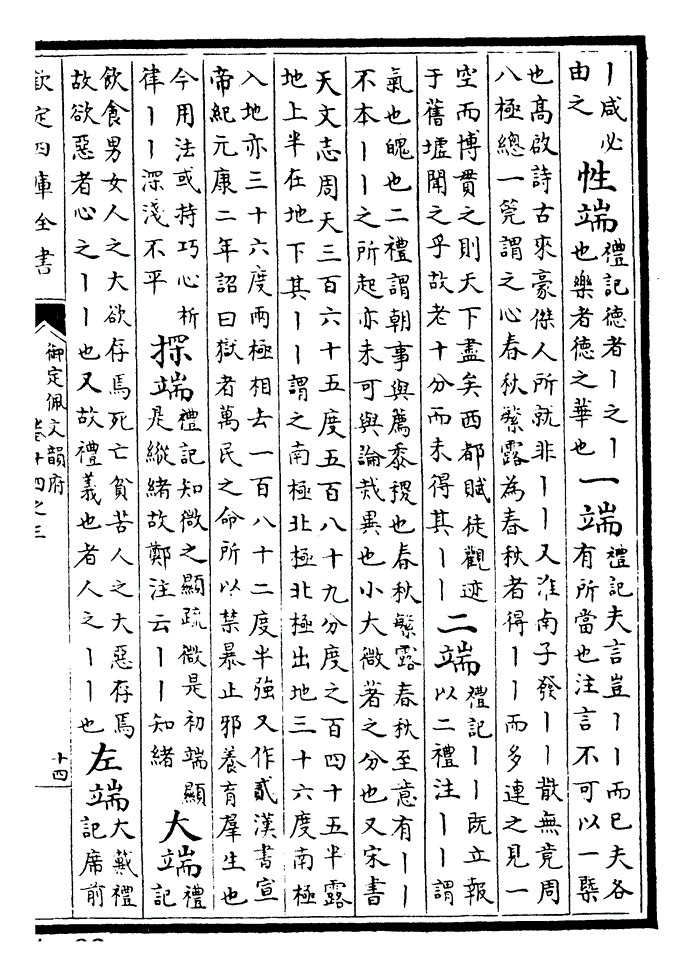 丨咸必
由之
性端
禮記德者丨之丨
也樂者德之華也
一端
禮記夫言豈丨丨而已夫各
有所當也注言不可以一槩
也高啟詩古來豪傑人所就非丨丨又淮南子發丨丨散無竟周
八極總一筦謂之心春秋繁露為春秋者得丨丨而多連之見一
空而博貫之則天下盡矣西都賦徒觀迹
于舊墟聞之乎故老十分而未得其丨丨
二端
禮記丨丨既立報
以二禮注丨丨謂
氣也魄也二禮謂朝事與薦黍稷也春秋繁露春秋至意有丨丨
不本丨丨之所起亦未可與論哉異也小大微著之分也又宋書
天文志周天三百六十五度五百八十九分度之百四十五半露
地上半在地下其丨丨謂之南極北極北極出地三十六度南極
入地亦三十六度兩極相去一百八十二度半強又作貳漢書宣
帝紀元康二年詔曰獄者萬民之命所以禁暴止邪養育羣生也
今用法或持巧心析
律丨丨深淺不平
探端
禮記知微之顯疏微是初端顯
是縱緒故鄭注云丨丨知緒
大端
禮記
飲食男女人之大欲存焉死亡貧苦人之大惡存焉
故欲惡者心之丨丨也又故禮義也者人之丨丨也
左端
大戴禮
記席前
欽定四庫全書
御定佩文韻府
卷十四之三
十四